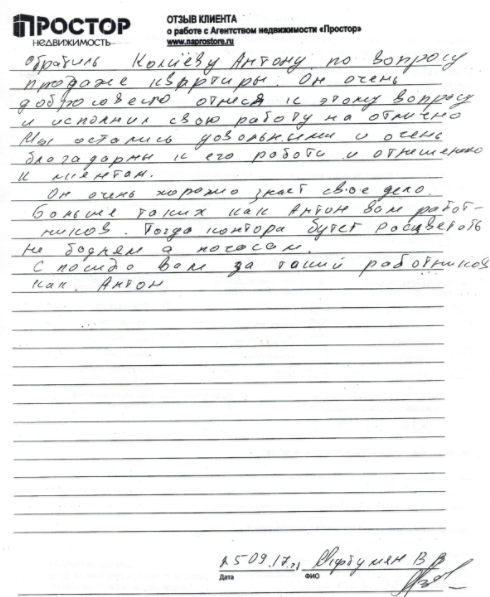 ПРОСТОР
НЕДВИЖИМОСТЬ
ОТЗЫВ КЛИЕНТА
о работе с Агентством недвижимости «Простор»
www.naprostore.ru
Обратиль Колиеву Антону по вопросу
продаже квартиры. Он очень
доброговестно отнеся к этому вопросу
и исполнил свою работу на отлично
Мы остались удовольными и очень
благадарны к его работи и отнешению
к миентам.
Он очень хорошо знает свое дело
Больше таких как Антон вам работ-
ников. Тогда контора бутет росцветать
не годням а почасам.
Спосидо вам за такий работников
как. Антон
25.09.17 г. В В
Дата ФИО